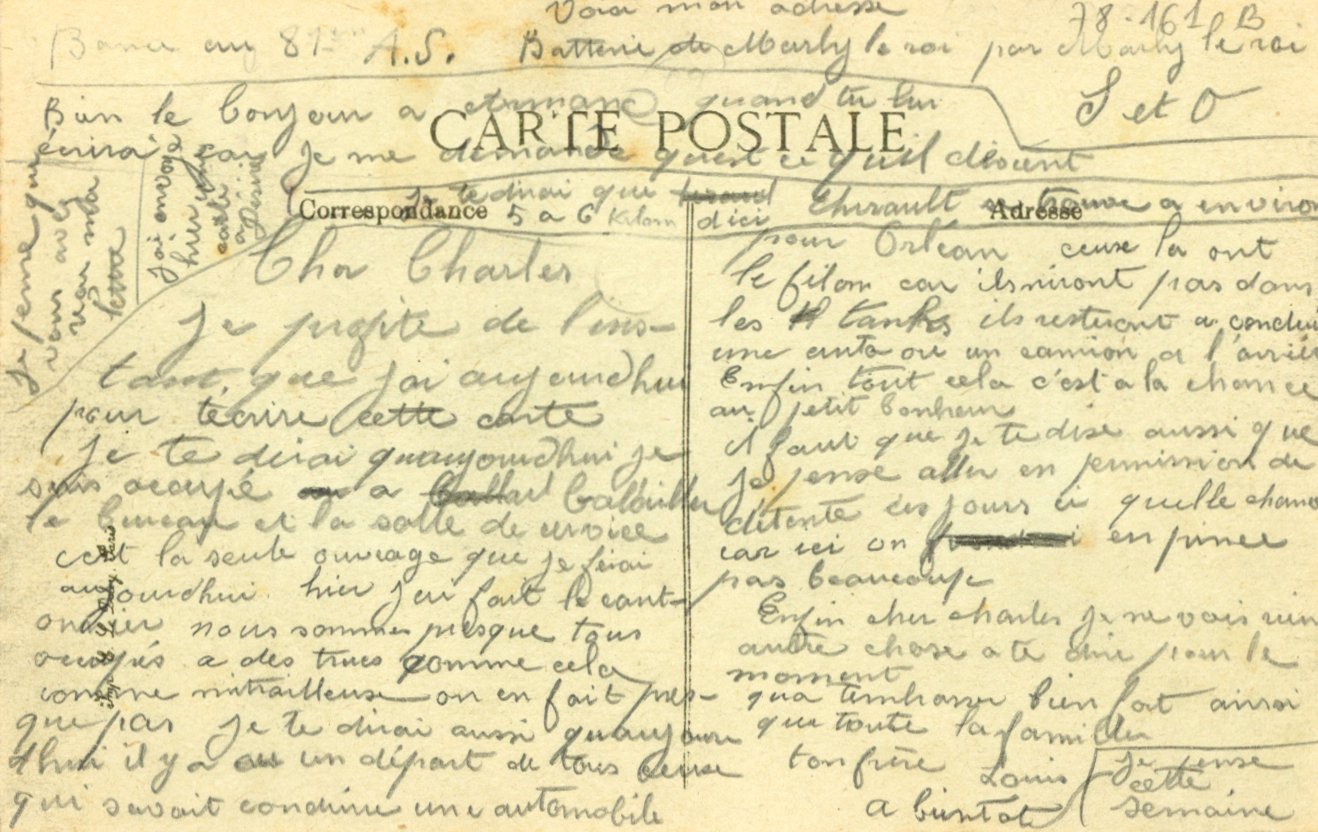 Voici mon adresse
78-161 B
au 81ème A.S. Batterie de Marly le roi par Marly le roi
S et O
Bien le bonjour a Armand quand tu lui
écrira car je me demande quest ce quil devient
CARTE POSTALE
Je te dirai que Thirault se trouve a environ
5 a 6 Kilom dici
Correspondance
Adresse
Je pense que vous avez reçu ma lettre
J'ai envoyé hier une carte a Désiré
Cher Charles
Je profite de l'ins-
tant que jai aujourdhui
pour técrire cette carte
Je te dirai quaujourdhui je
suis occupé a balailler
le bureau et la salle de service
cest la seule ouvrage que je ferai
aujourdhui hier jai fait le cant-
onnier nous sommes presque tous
occupés a des trucs comme cela
comme mitrailleuse on en fait pres-
que pas je te dirai aussi quaujour
dhui il y a eu un départ de tous ceuse
qui savait conduire une automobile
pour Orléan ceuse la ont
le filon car ils niront pas dans
les tanks ils resteront a conduire
une auto ou un camion a l'arrière
Enfin tout cela c'est a la chance
au petit bonheur
il faut que je te dise aussi que
je pense aller en permission de
détente ces jours ci quelle chance
car ici on en pince
pas beaucoup
Enfin cher charles je ne vois rien
autre chose a te dire pour le
moment
qua tembrasser bien fort ainsi
que toute la famille
ton frère Louis
a bientot
je pense
cette
semaine